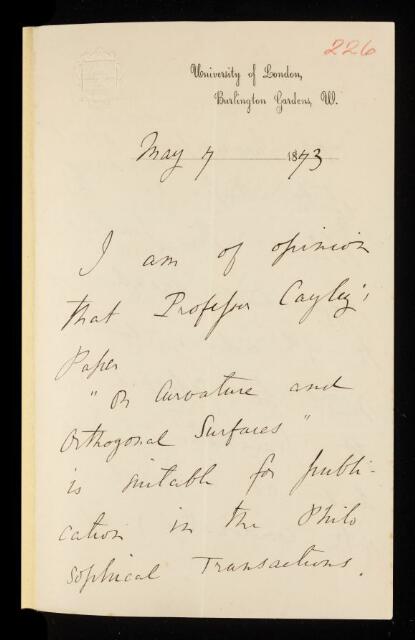 226
University of London,
Burlington Gardens, W.
May 7 1873
I am of opinion
that Professor Cayley's
Paper
"On Curvature and
Orthogonal Surfaces"
is suitable for publi-
cation in the Philo
sophical Transactions.